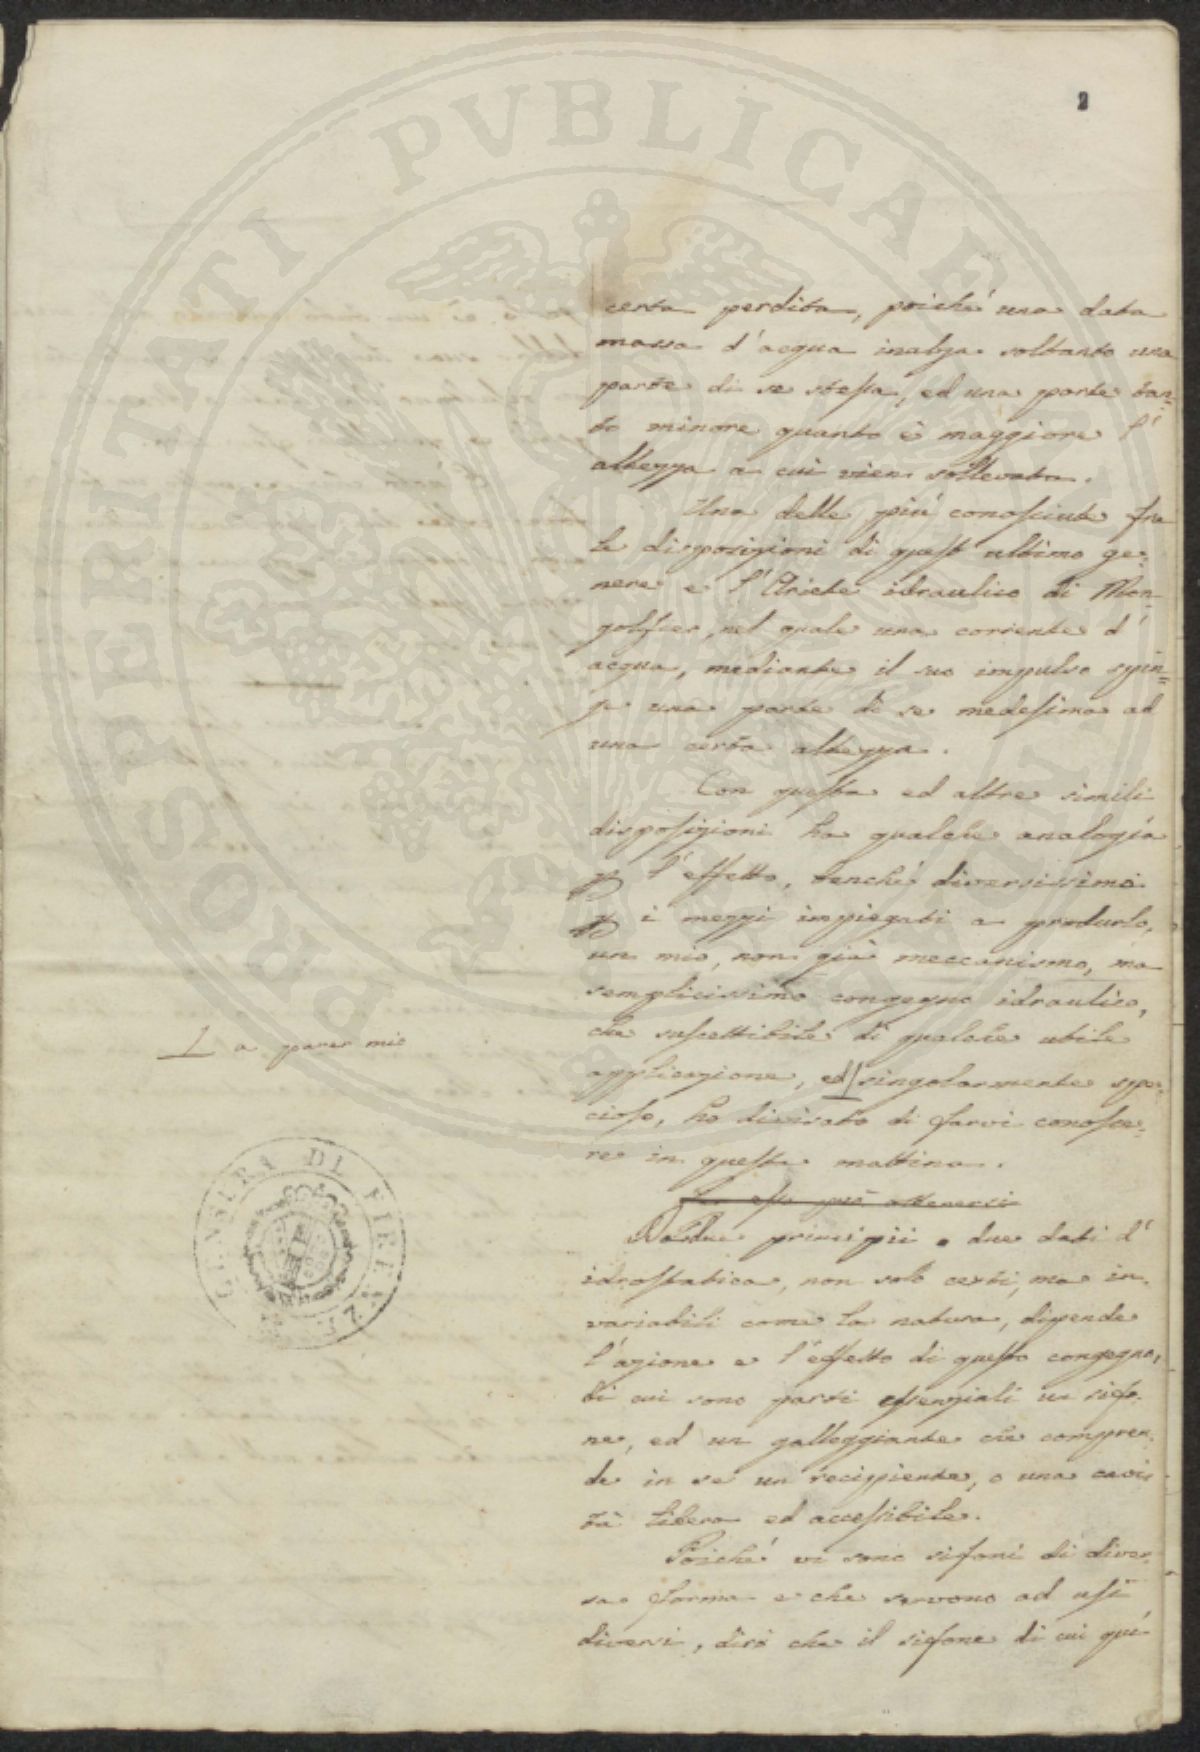 2
certa perdita, poiché una data
massa d'acqua inalza soltanto una
parte di se stessa, ed una parte tan=
to minore quanto è maggiore l'
altezza a cui vien sollevata.
Una delle più conosciute fra
le disposizioni di quest'ultimo ge=
nere e l'Ariete idraulico di Mon=
golfier, nel quale una corrente d'
acqua, mediante il suo impulso spin=
ge una parte di se medesima ad
una certa altezza.
Con questa ed altre simili
disposizioni ha qualche analogia
p l'effetto, benché diversissimo
p i mezzi impiegati a produrlo,
un mio, non già meccanismo, ma
semplicissimo congegno idraulico,
che suscettibile di qualche utile
a parer mio
applicazione, ed singolarmente spe=
cioso, ho divisato di farvi conosce=
re in questa mattina.
può ottenersi
Da due principii o due dati d'
idrostatica, non solo certi, ma in=
variabili come la natura, dipende
l'azione e l'effetto di questo congegno,
di cui sono parti essenziali un sifo=
ne, ed un galleggiante che compren=
de in se un recipiente, o una cavi=
tà libera ed accessibile.
Poiché vi sono sifoni di diver=
sa forma e che servono ad usi
diversi, dirò che il sifone di cui quì
CENSURA DI FIRENZE
PROSPERITATI PVBLICAE